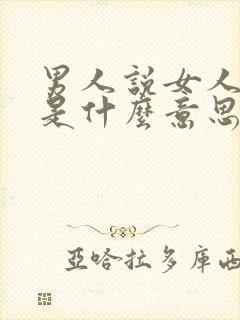 男人說女人
是什麼意思
亞哈拉多庫西